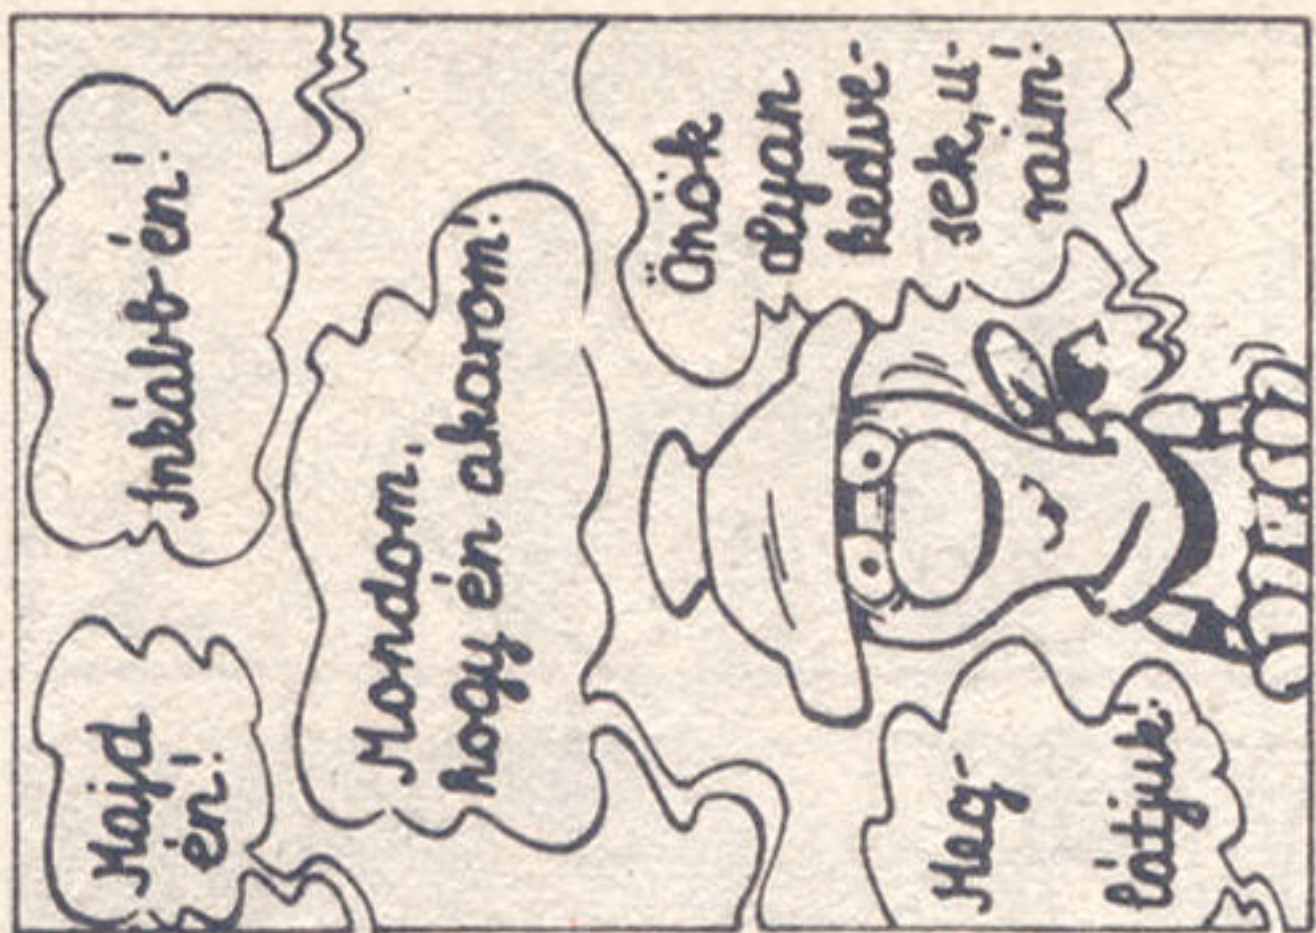 Majd
én!
Inkább én!
Mondom,
hogy én akarom!
Önök
olyan
kedve-
sek, u-
raim!
Meg-
látjuk!